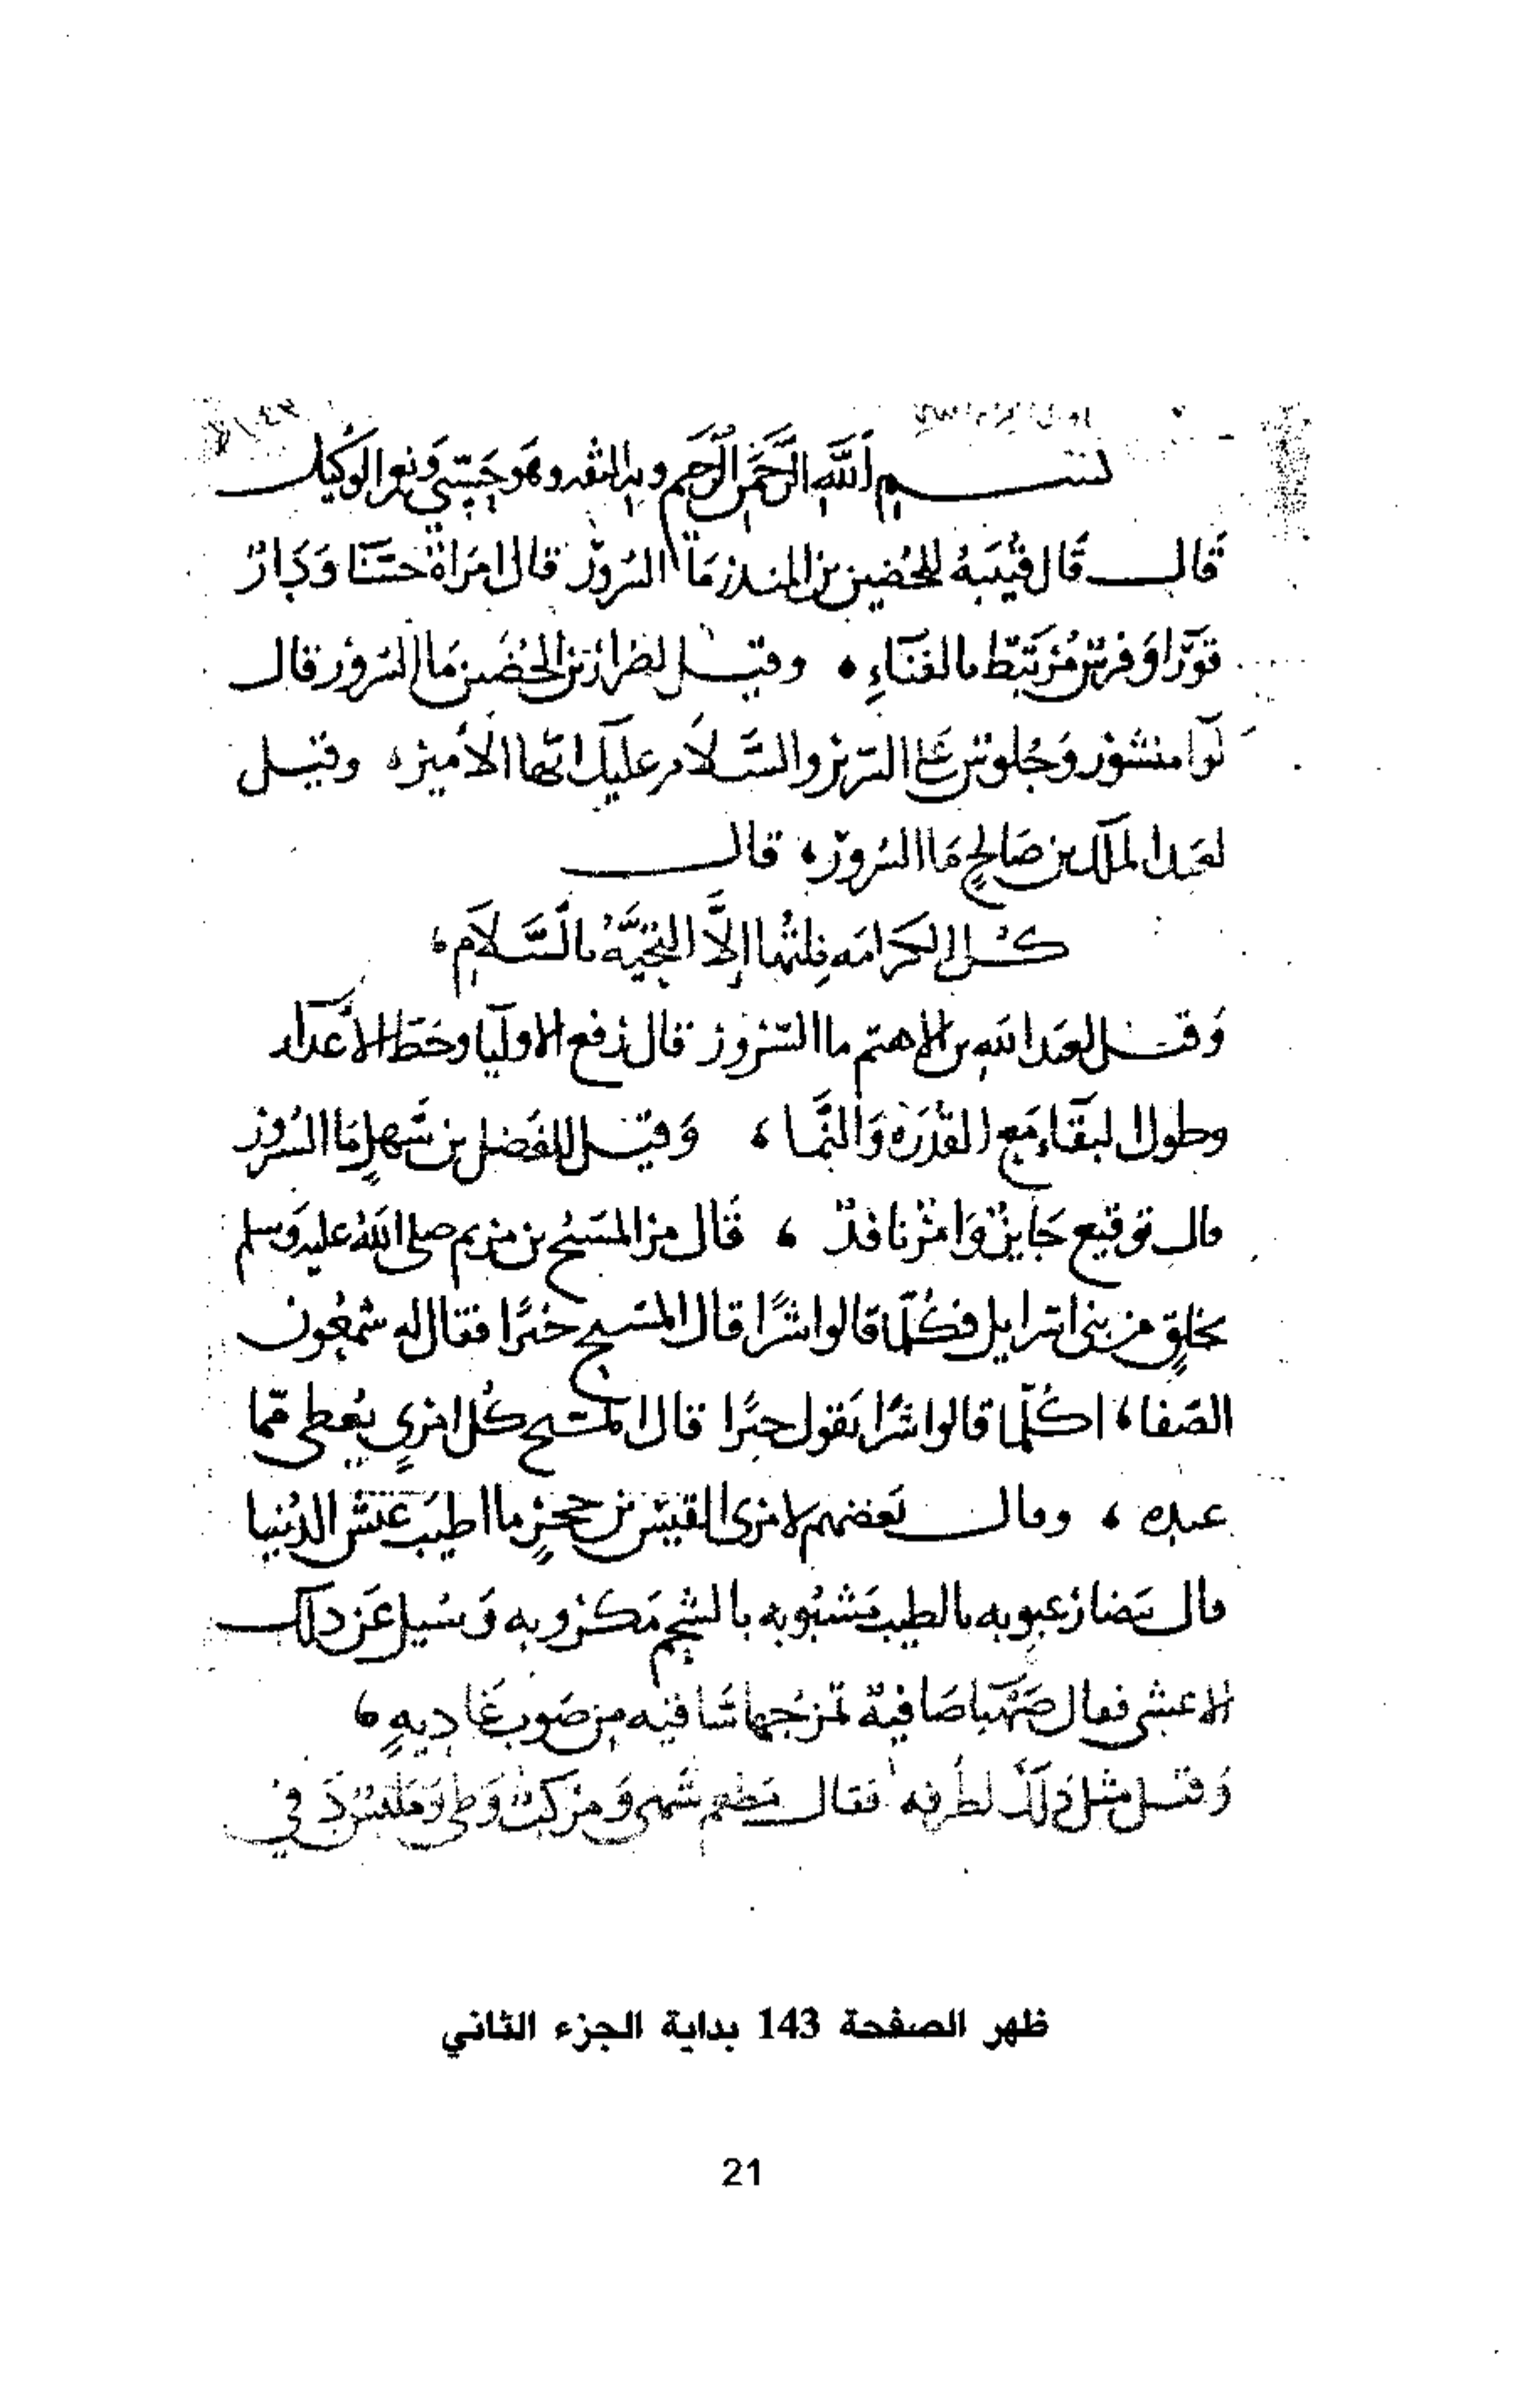 بسم الله الرحمن الرحيم وبه الثقه وهو حَسبي ونعم الوكيل
قال قَال قُتيبَةُ للحُضين بن المنذر مَا السُرورُ قال امرَاة حسَنَا وَدَارٌ
قَوْرَا وَفرسٌ مُرتبَط بالفنَاءِ . وقيل لضرار بن الحُضَين مَا السُرورُ قال
لوَا منشور وَجُلوسٌ عَلى السَرير والسَّلاَم عليك ايّها الأمير ، وقيل
لعَبد الملك بن صَالحٍ مَا السُرورُ ، قال
كُل الكرامَه نِلتُها إلاَّ التحِيَّةُ بالسَّلاَمِ ،
وَقيل لعَبد الله بن الاهتم ما السُرورُ قال رَفع الاوليَا وحَط الأعدَاء
وطول البقَاءِ مَع القُدرَه وَالنَّما ، وَقيل للفَضل بن سَهلٍ مَا السُرور
قال توقيع جَايزٌ وَامرٌ نافذ ، قَال مر المسَيحُ بن مريم صلى اللهُ عليه وَسلم
بخلقٍ من بنى اسرايل فكُلّما قالوا شرًّا قال المسَيح خيرًا فقال له شمعُون
الصَفا ، اكُلّما قالوا شرًّا تقول خيرًا قال المسَيح كُل امرىٍ يُعطى مّما
عنده ، وقال بعَضهم لامرى القيس بن حجرٍ ما اطيَب عَيش الدُنيا
قال بيَضا رُعبوبه بالطيب مَشبُوبه بالشحم مَكرُوبه وَسُيل عَن ذلك
الاعشى فقال صَهبَا صَافيَة تمزجُها سَاقيَه مِن صَوبِ غَاديهٍ ،
وَقيل مثل ذَلك لطرَفه فقال مَطعم شَهى وَمركبٌ وَطى وَملبسٌ دَفي
ظهر الصفحة 143 بداية الجزء الثاني
21